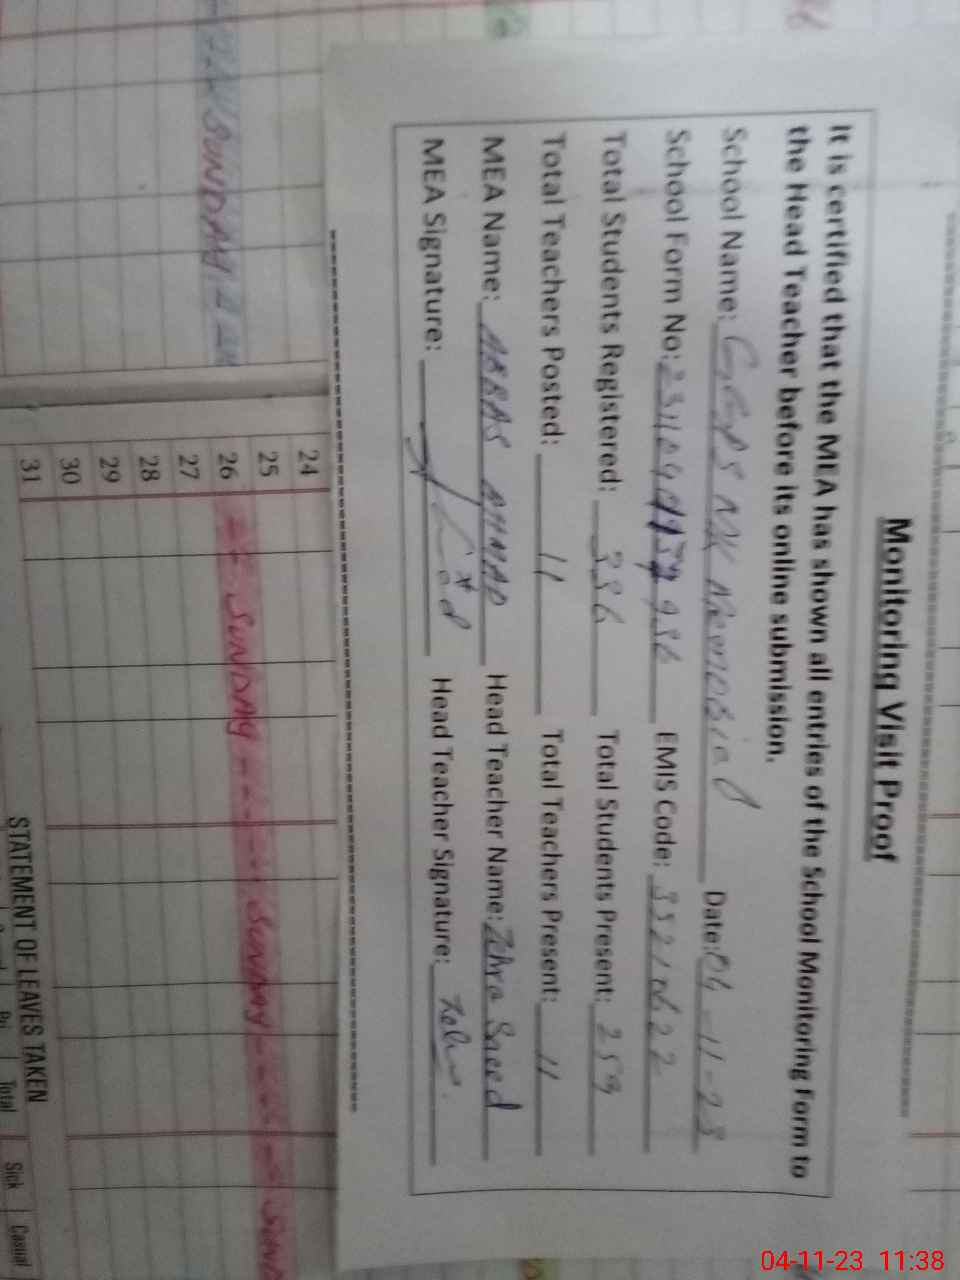 Monitoring Visit Proof
It is certified that the MEA has shown all entries of the School Monitoring Form to
the Head Teacher before its online submission.
School Name: GGPS Date: 04-11-23
School Form No: EMIS Code:
Total Students Registered: 336 Total Students Present: 259
Total Teachers Posted: 11 Total Teachers Present: 11
MEA Name: ABBAS AHMAD Head Teacher Name: Zahra Saeed
MEA Signature: Head Teacher Signature:
SUNDAY
24
25
26 SUNDAY SUNDAY
27
28
29
30
31
STATEMENT OF LEAVES TAKEN
Total Sick Casual
04-11-23 11:38